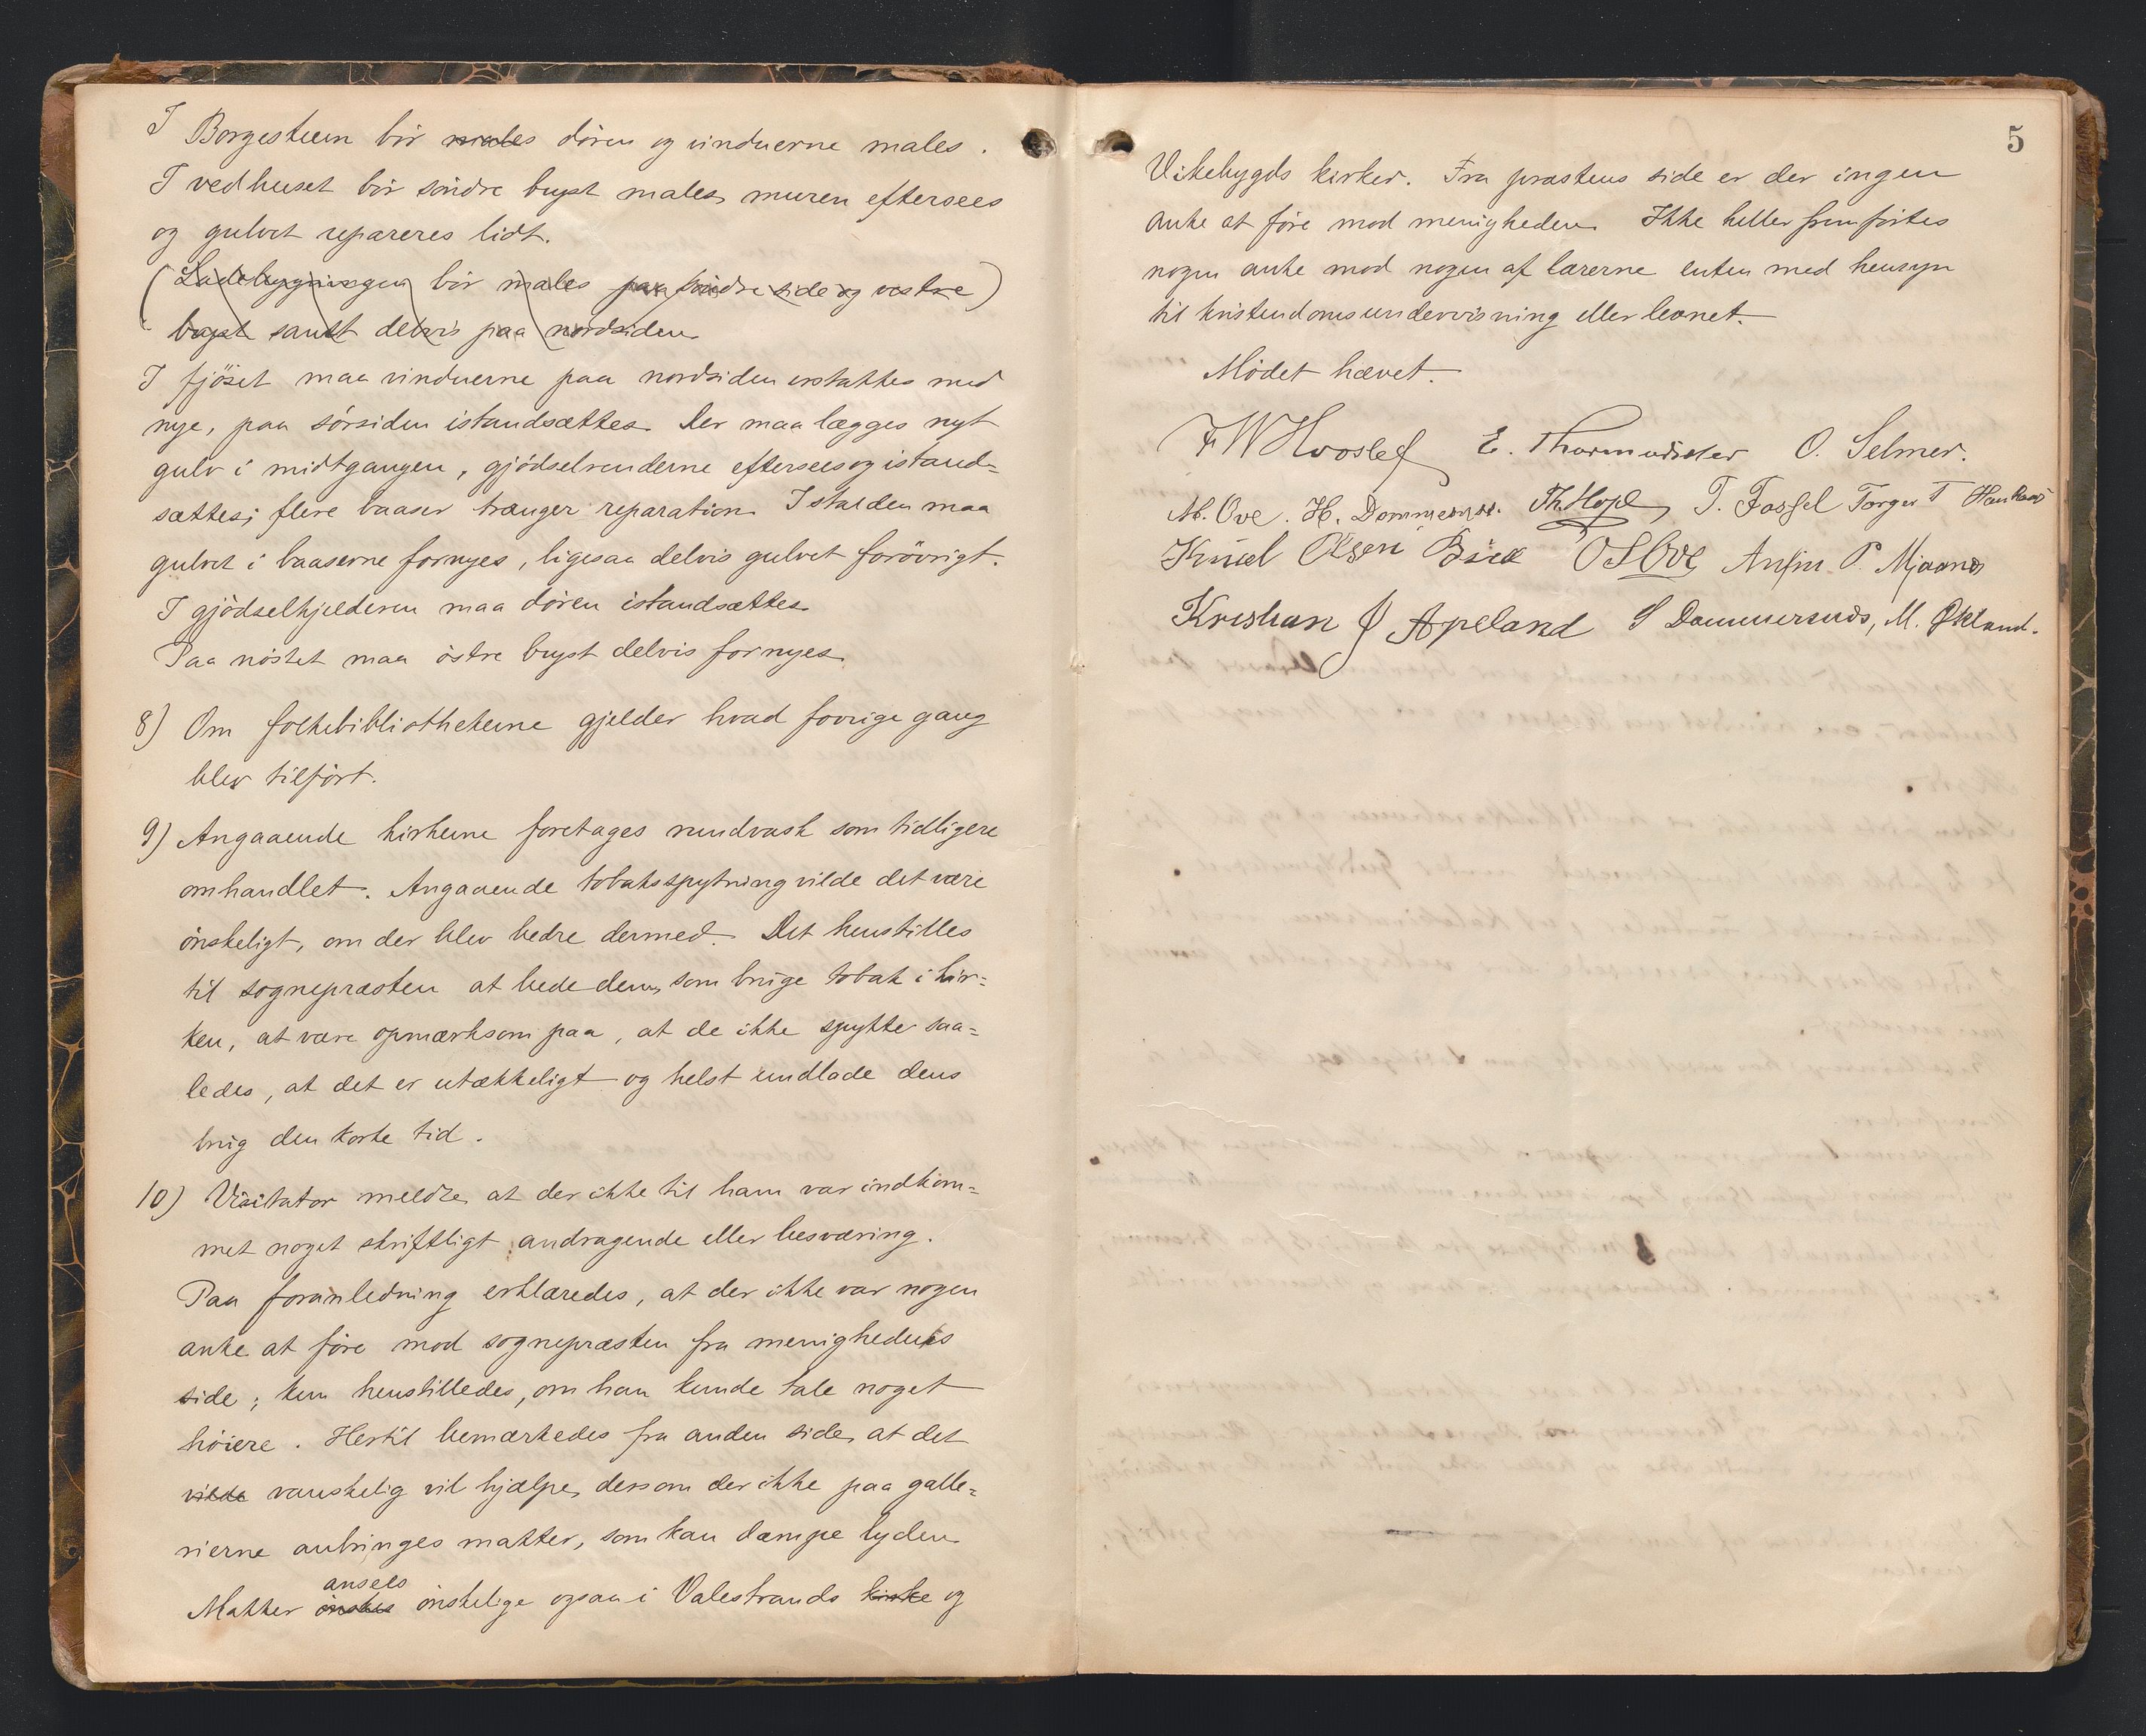 I Borgestuen bör males dören og vinduerne males.
I vedhuset bör söndre bryst males, muren eftersees
og gulvet repareres lidt.
(Ladebygningen bör males paa söndre side og vestre)
bryst samt delvis paa nordsiden
I fjöset maa vinduerne paa nordsiden erstattes med
nye, paa sörsiden istandsættes. Der maa lægges nyt
gulv i midtgangen, gjödselrenderne eftersees og istand=
sættes; flere baaser trænger reparation. I stalden maa
gulvet i baaserne fornyes, ligesaa delvis gulvet forövrigt.
I gjödselkjelderen maa dören istandsættes.
Paa nöstet maa östre bryst delvis fornyes.
8) Om folkebibliothekerne gjelder hvad forrige gang
blev tilfört.
9) Angaaende kirkerne foretages rundvask som tidligere
omhandlet. Angaaende tobaksspytning vilde det være
önskeligt, om der blev bedre dermed. Det henstilles
til sognepræsten at bede dem, som bruge tobak i kir=
ken, at være opmærksom paa, at de ikke spytte saa=
ledes, at det er utækkeligt og helst undlade dens
brug den korte tid.
10) Visitator meldte, at der ikke til ham var indkom=
met noget skriftligt andragende eller besværing.
Paa foranledning erklæredes, at der ikke var nogen
anke at före mod sognepræsten fra menighedens
side; kun henstilledes, om han kunde tale noget
höiere. Hertil bemærkedes fra anden side, at det
vilde vanskelig vil hjælpe, dersom der ikke paa galle=
rierne anbringes matter, som kan dæmpe lyden.
ansees
Matter önskes önskelige ogsaa i Valestrands kirke og
5
Vikebygds kirker. Fra præstens side er der ingen
anke at före mod menigheden. Ikke heller fremförtes
nogen anke mod nogen af lærerne enten med hensyn
til kristendomsundervisning eller levnet.
Mödet hævet.
F W Hvoslef E. Thormodsæter O. Selmer.
M. Ove. H. Dommersnes. Th. Hope, T. Fosse Torger T Haukaas
Knud Olsen O S Ove Anfin P. Mjaanes
Kristian J Apeland S Dommersnes, M. Økland.